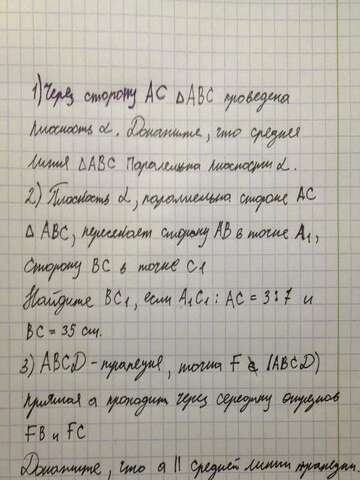 1) Через сторону AC △ABC проведена
плоскость α. Докажите, что средняя
линия △ABC Паралельна плоскости α.
2) Плоскость α, параллельна стороне AC
△ ABC, пересекает сторону AB в точке A₁,
Сторону BC в точке C1
Найдите BC₁, если A₁C₁ : AC = 3:7 и
BC = 35 см.
3) ABCD - трапеция, точка F (ABCD)
Прямая a проходит через середину отрезков
FB и FC
Докажите, что a || средней линии трапеции.